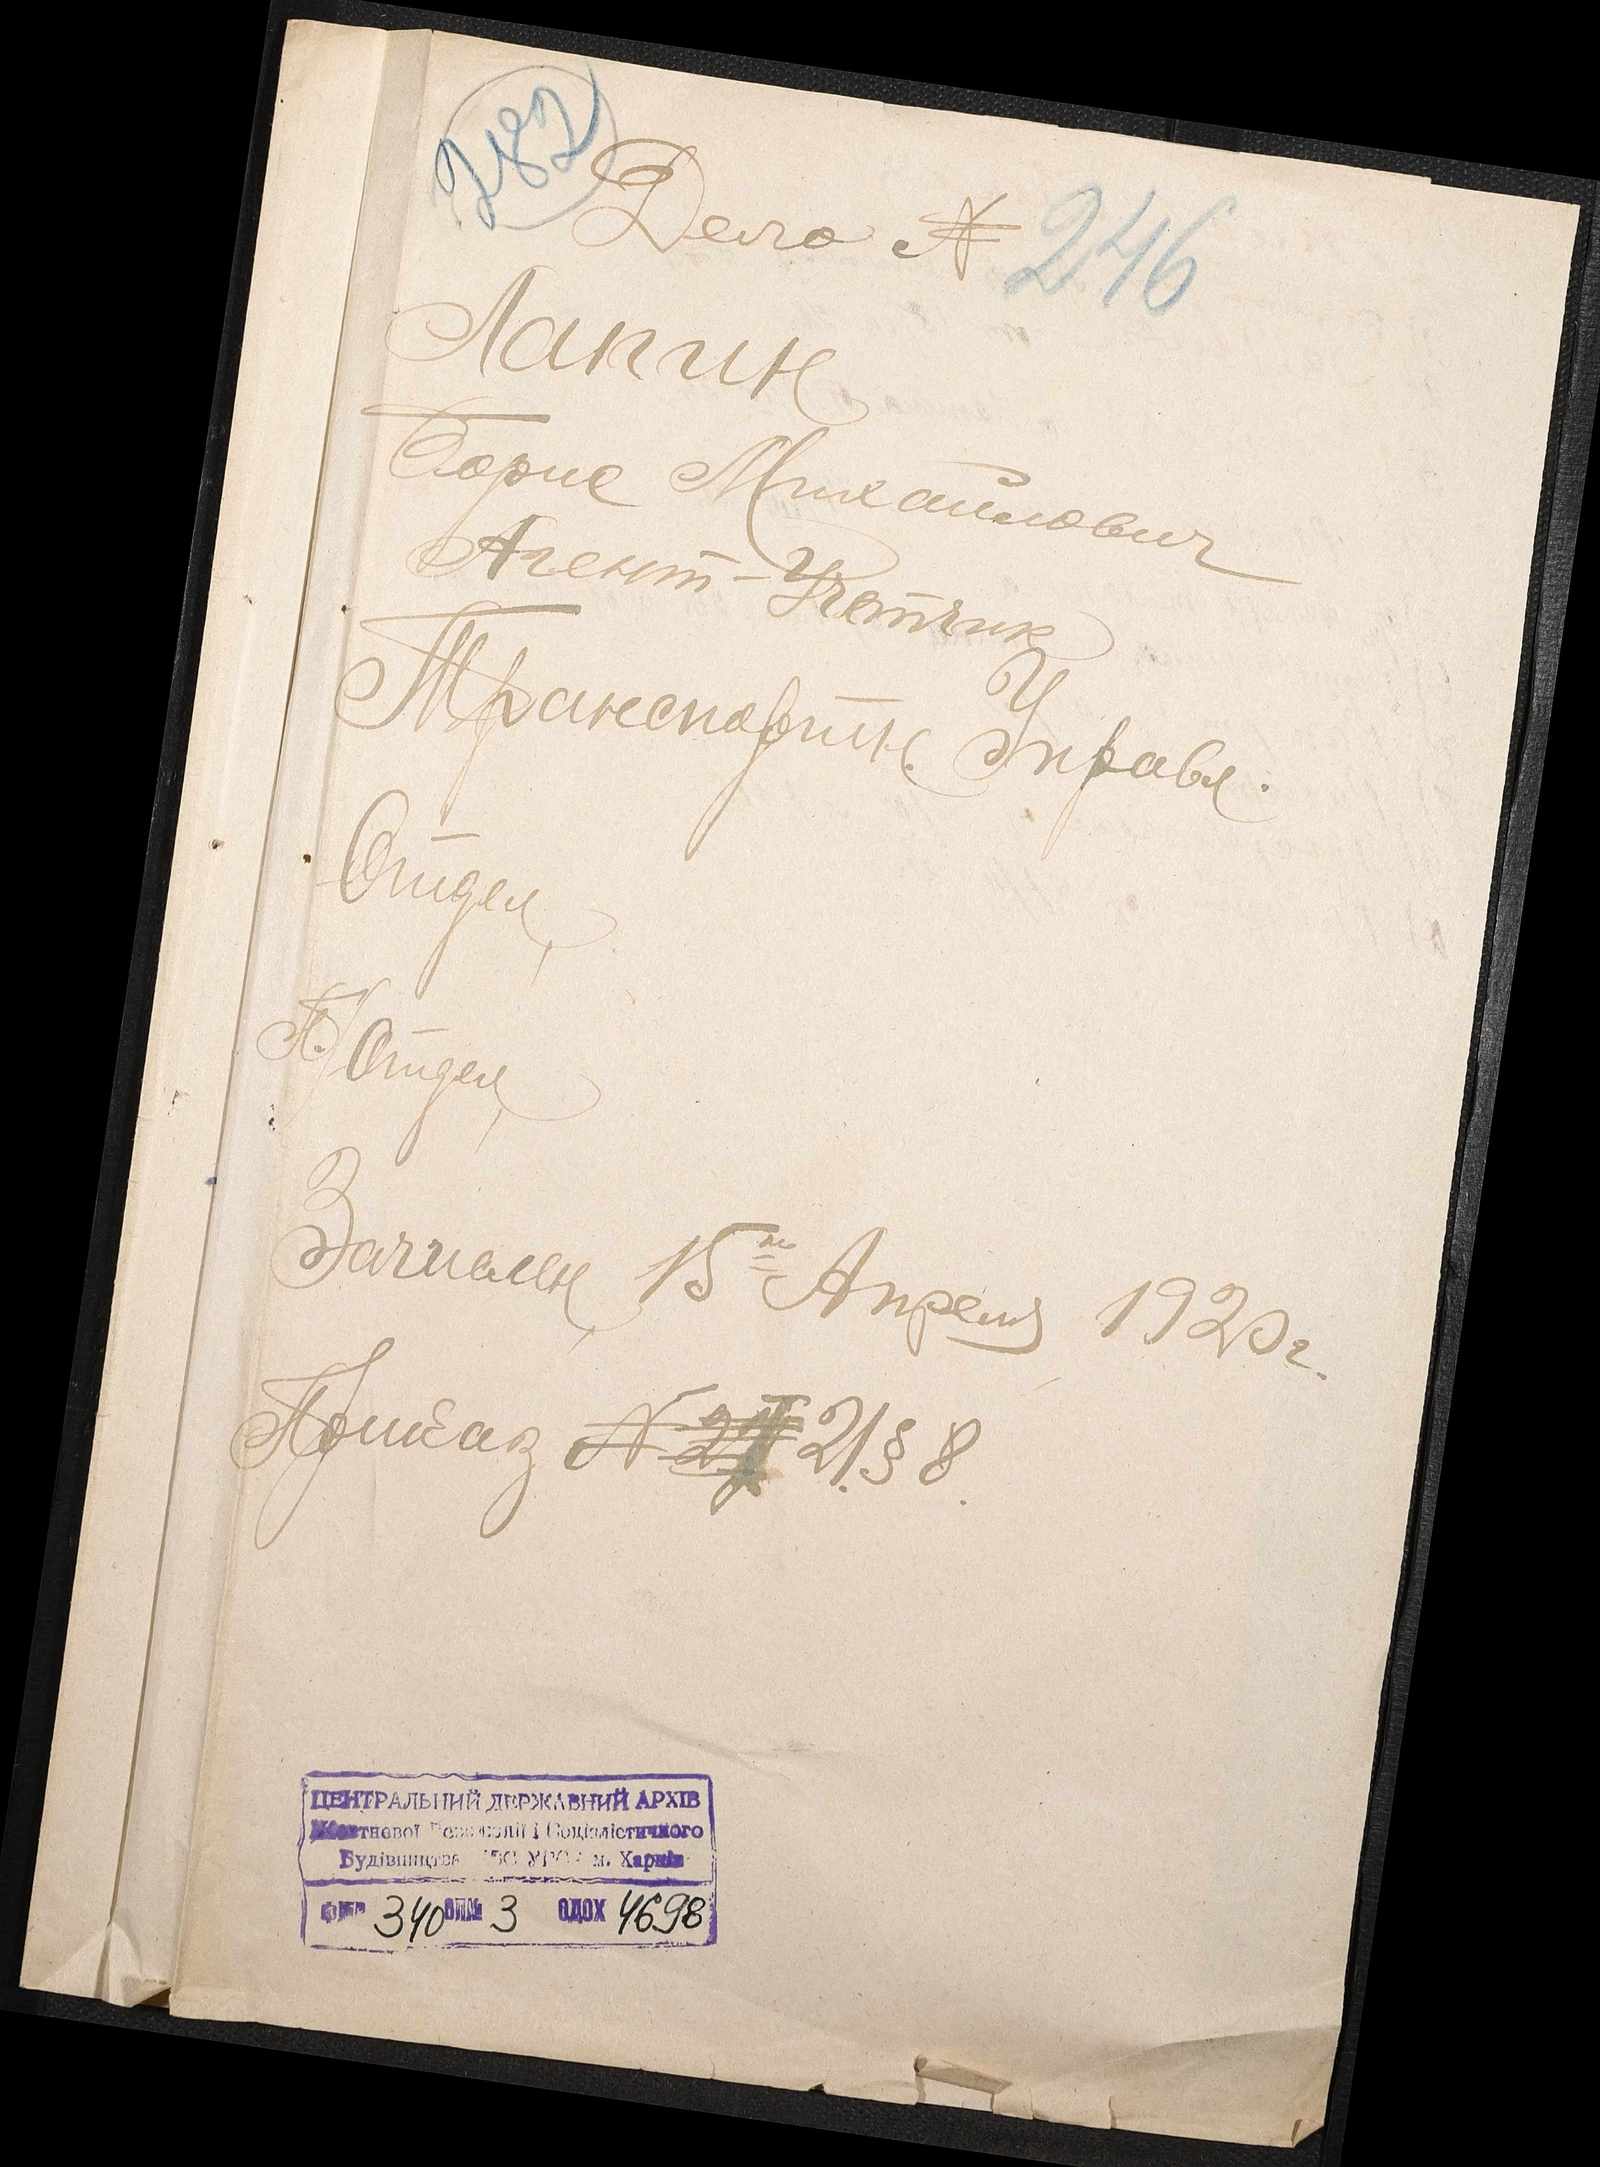 282
Дело № 246
Лапин
Борис Михайлович
Агент-Учетчик
Транспортн. Управл.
Отдел
П/Отдел
Зачислен 15го Апреля 1920 г.
Приказ № 21 § 8.
ЦЕНТРАЛЬНИЙ ДЕРЖАВНИЙ АРХІВ
Жовтневої Революції і Соціалістичного
Будівництва УРСР м. Харків
340 ОПИС 3 ОДОХ 4698